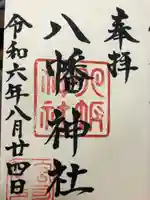 奉拝
八幡神社
令和六年八月廿四日